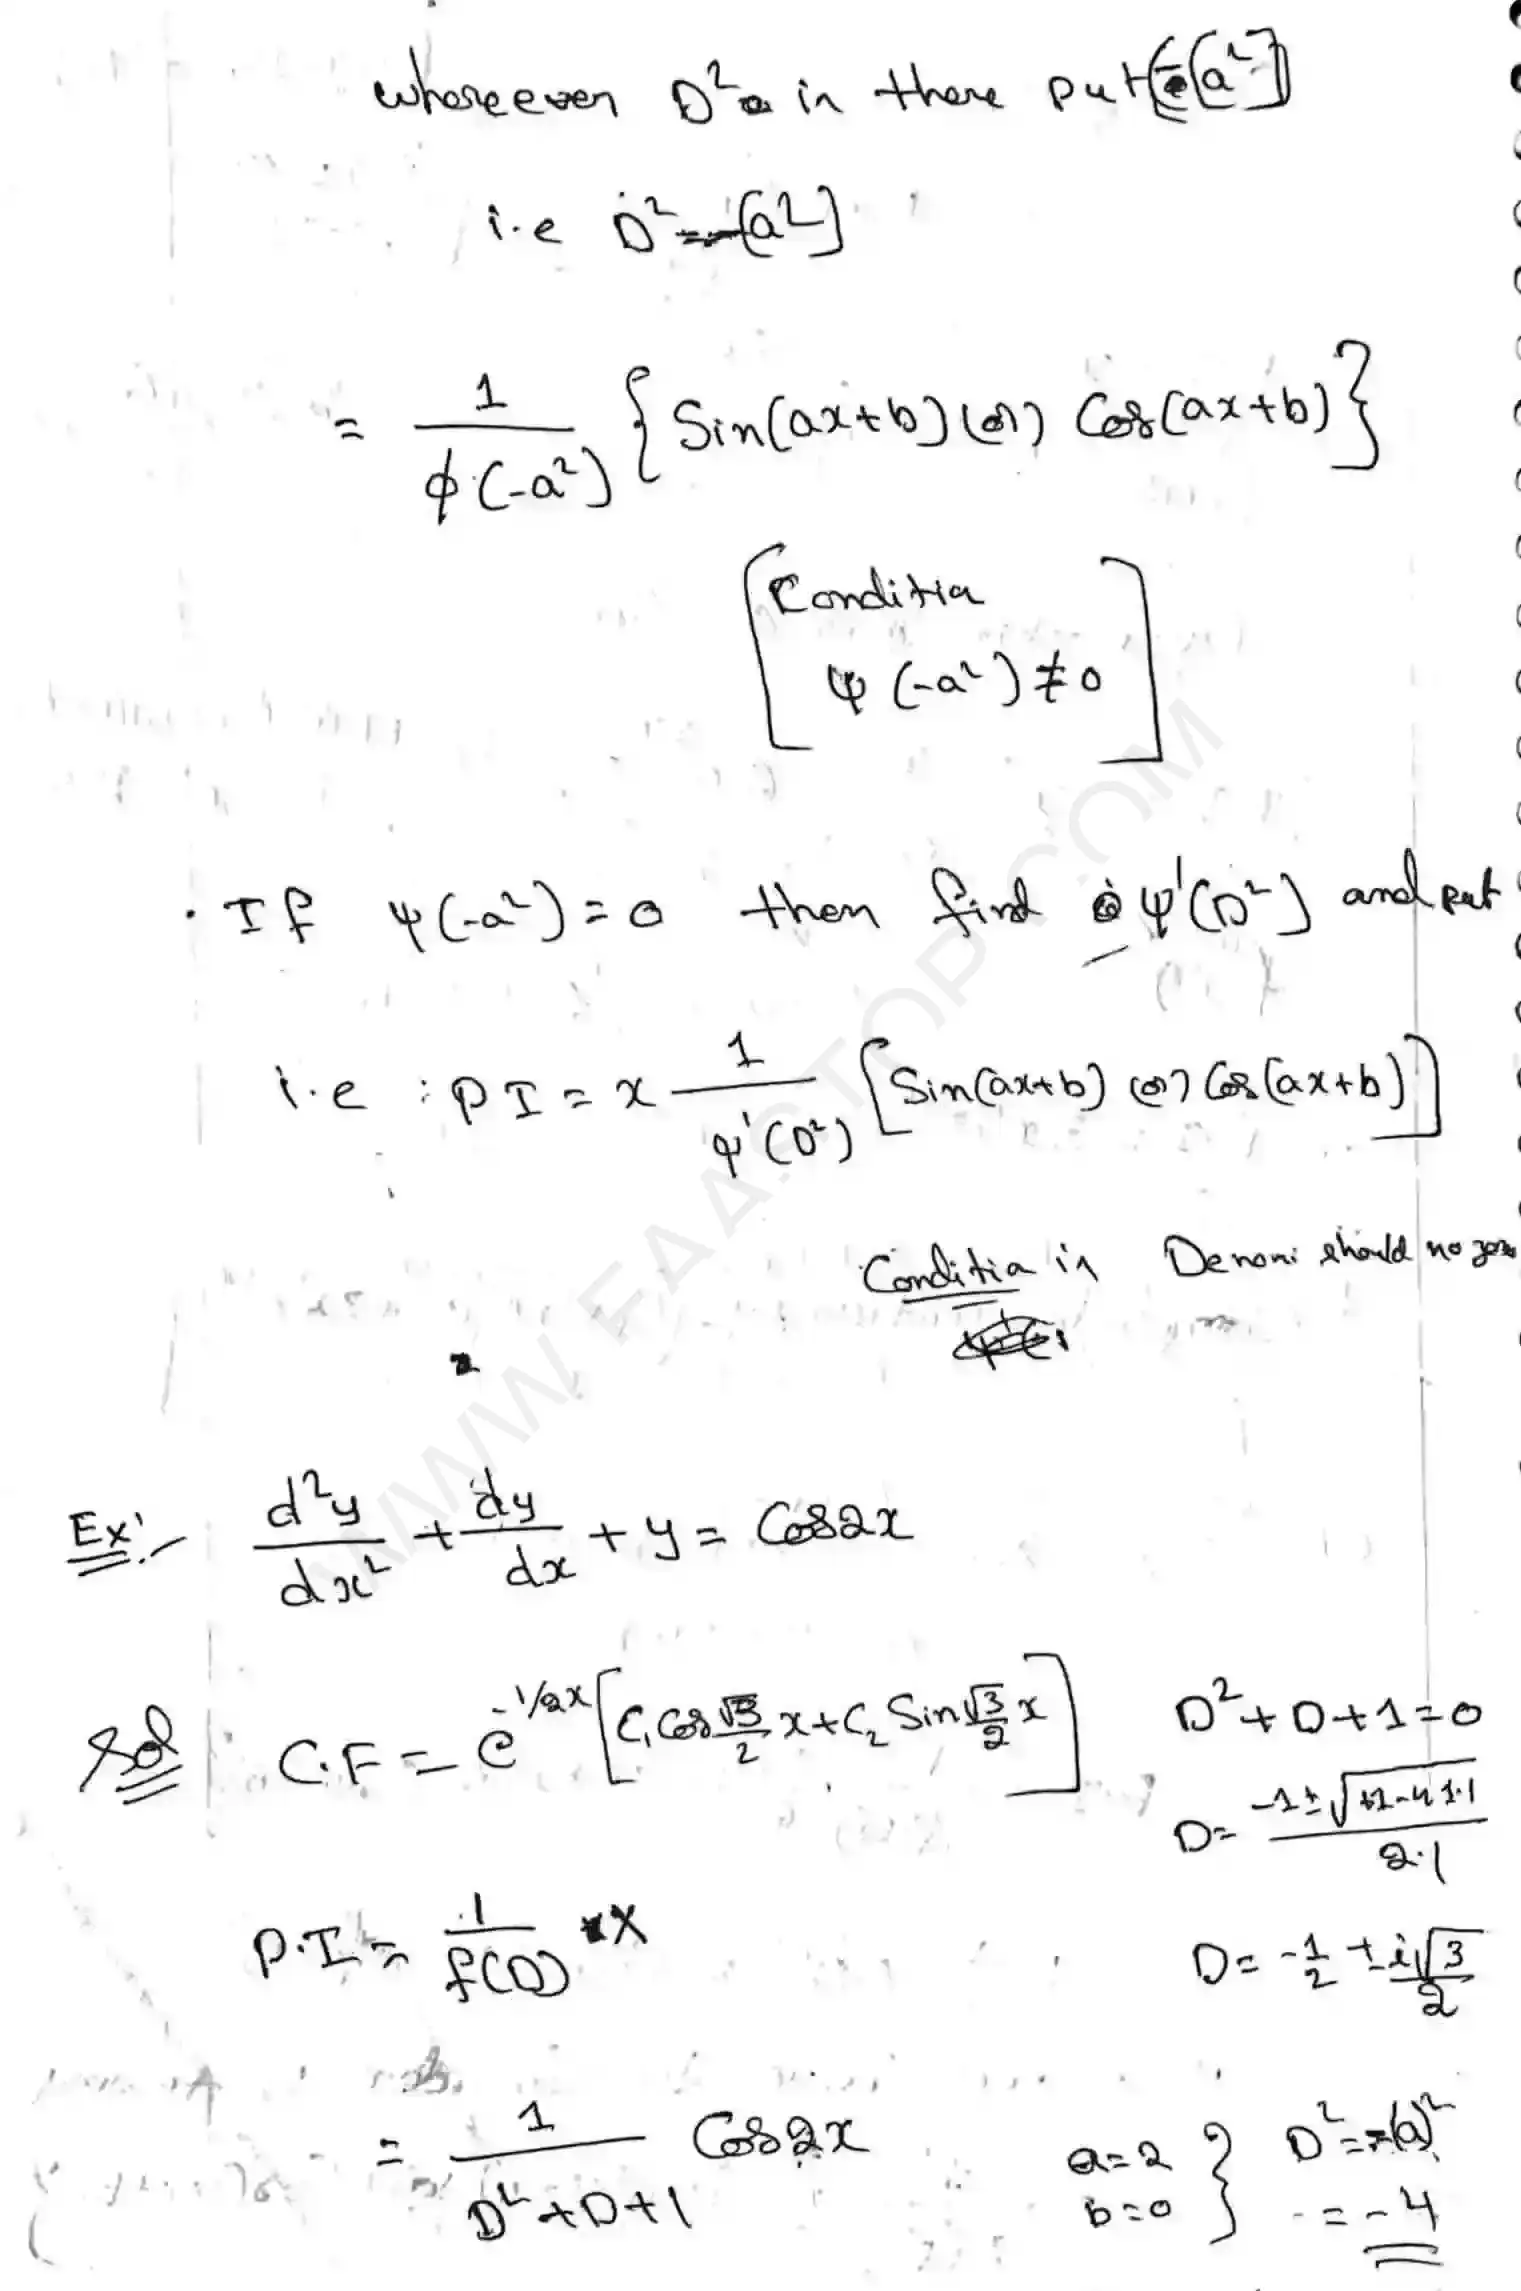 whereever D² is in there put [-(a²)]
i.e D² = -(a²)
= 1/ϕ(-a²) {Sin(ax+b) (or) Cos(ax+b)}
[Conditia
ψ(-a²) ≠ 0]
· If ψ(-a²) = 0 then find ψ'(D²) and put
i.e : PI = x 1/ψ'(D²) [Sin(ax+b) (or) Cos(ax+b)]
Conditia is Denomi should no zero
Ex:- d²y/dx² + dy/dx + y = Cos2x
Sol C.F = e^(-1/2x) [C₁Cos √3/2 x + C₂ Sin √3/2 x]
D² + D + 1 = 0
D = (-1 ± √(+1-4 1·1))/(2·1)
P.I = 1/f(D) X
D = -1/2 ± i√3/2
= 1/(D²+D+1) Cos2x
a = 2
b = 0 }
D² = -(a)²
= -4
WWW.FAASTOP.COM